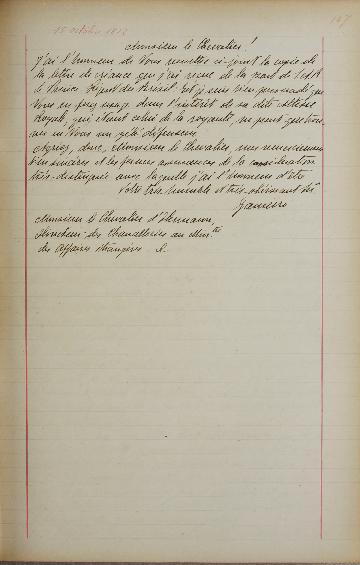 167
15 octobre 1818
Monsieur le Chevalier!
J'ai l'honneur de Vous remettre ci-joint la copie de
la lettre de créance que j'ai reçue de la part de S.A.R.
le Prince Régent du Brésil. Et je suis bien persuadé que
Vous en ferez usage dans l'intérêt de sa dite Altesse
Royale, qui étant celui de la royauté, ne peut que trou-
ver en Vous un zélé défenseur.
Agréez, donc, Monsieur le Chevalier, mes remerciemens
bien sincères et les fermes assurances de la considération
très-distinguée avec laquelle j'ai l'honneur d'être
Votre très humble et très-obéissant Sr.
Gameiro
Monsieur le Chevalier d'Hermann,
des Chancelleries au Ministre
des Affaires étrangères